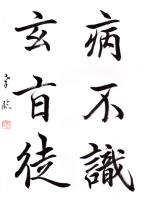 病不識
玄盲徒